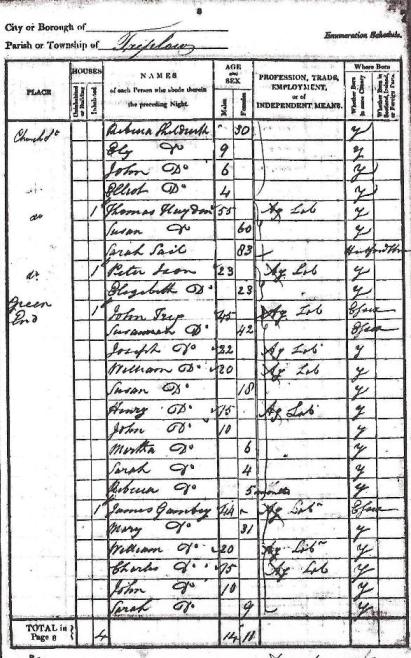 8
City or Borough of
Parish or Township of Triplow
Enumeration Schedule.
PLACE
HOUSES
Uninhabited or Building
Inhabited
NAMES
of each Person who abode therein the preceding Night.
AGE and SEX
Males
Females
PROFESSION, TRADE, EMPLOYMENT, or of INDEPENDENT MEANS.
Where Born
Whether Born in same County
Whether Born in Scotland, Ireland, or Foreign Parts.
Church St Rebecca 30 y
Ely Do 9 y
John Do 6 y
Elliot Do 4 y
do 1 Thomas Haydon 55 Ag Lab y
Susan Do 60 y
Sarah Sail 83 Hertfordshire
do 1 Peter 23 Ag Lab y
Elizabeth Do 23 y
Green End 1 John Trip 45 Ag Lab Essex
Susannah Do 42 Essex
Joseph Do 22 Ag Lab y
William Do 20 Ag Lab y
Susan Do 18 y
Henry Do 15 Ag Lab y
John Do 10 y
Martha Do 6 y
Sarah Do 4 y
Rebecca Do 5 months y
1 James Gamboy 44 Ag Lab Essex
Mary Do 31 y
William Do 20 Ag Lab y
Charles Do 15 Ag Lab y
John Do 10 y
Sarah Do 9 y
TOTAL in Page 8 4 14 11